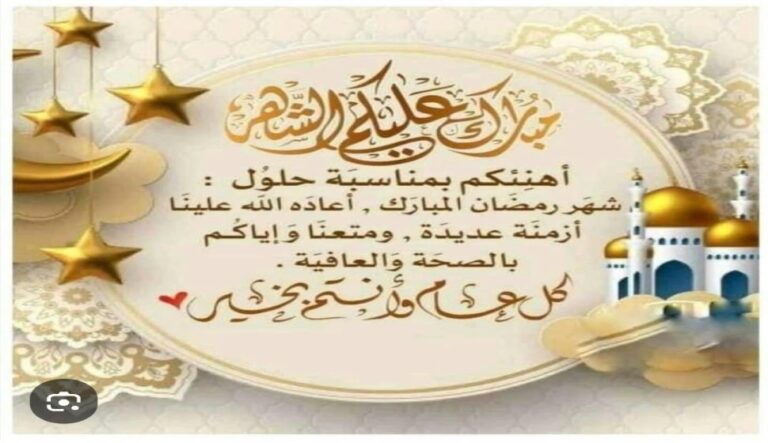 مبارك عليكم الشهر
أهنِئكم بمناسبَة حلوُل :
شهَر رمضَان المبارَك , أعادَه الله علينَا
أزمنَة عديدَة , ومتعنَا وَإياكُم
بالصحَة وَالعافيَة .
كل عام وأنتم بخير